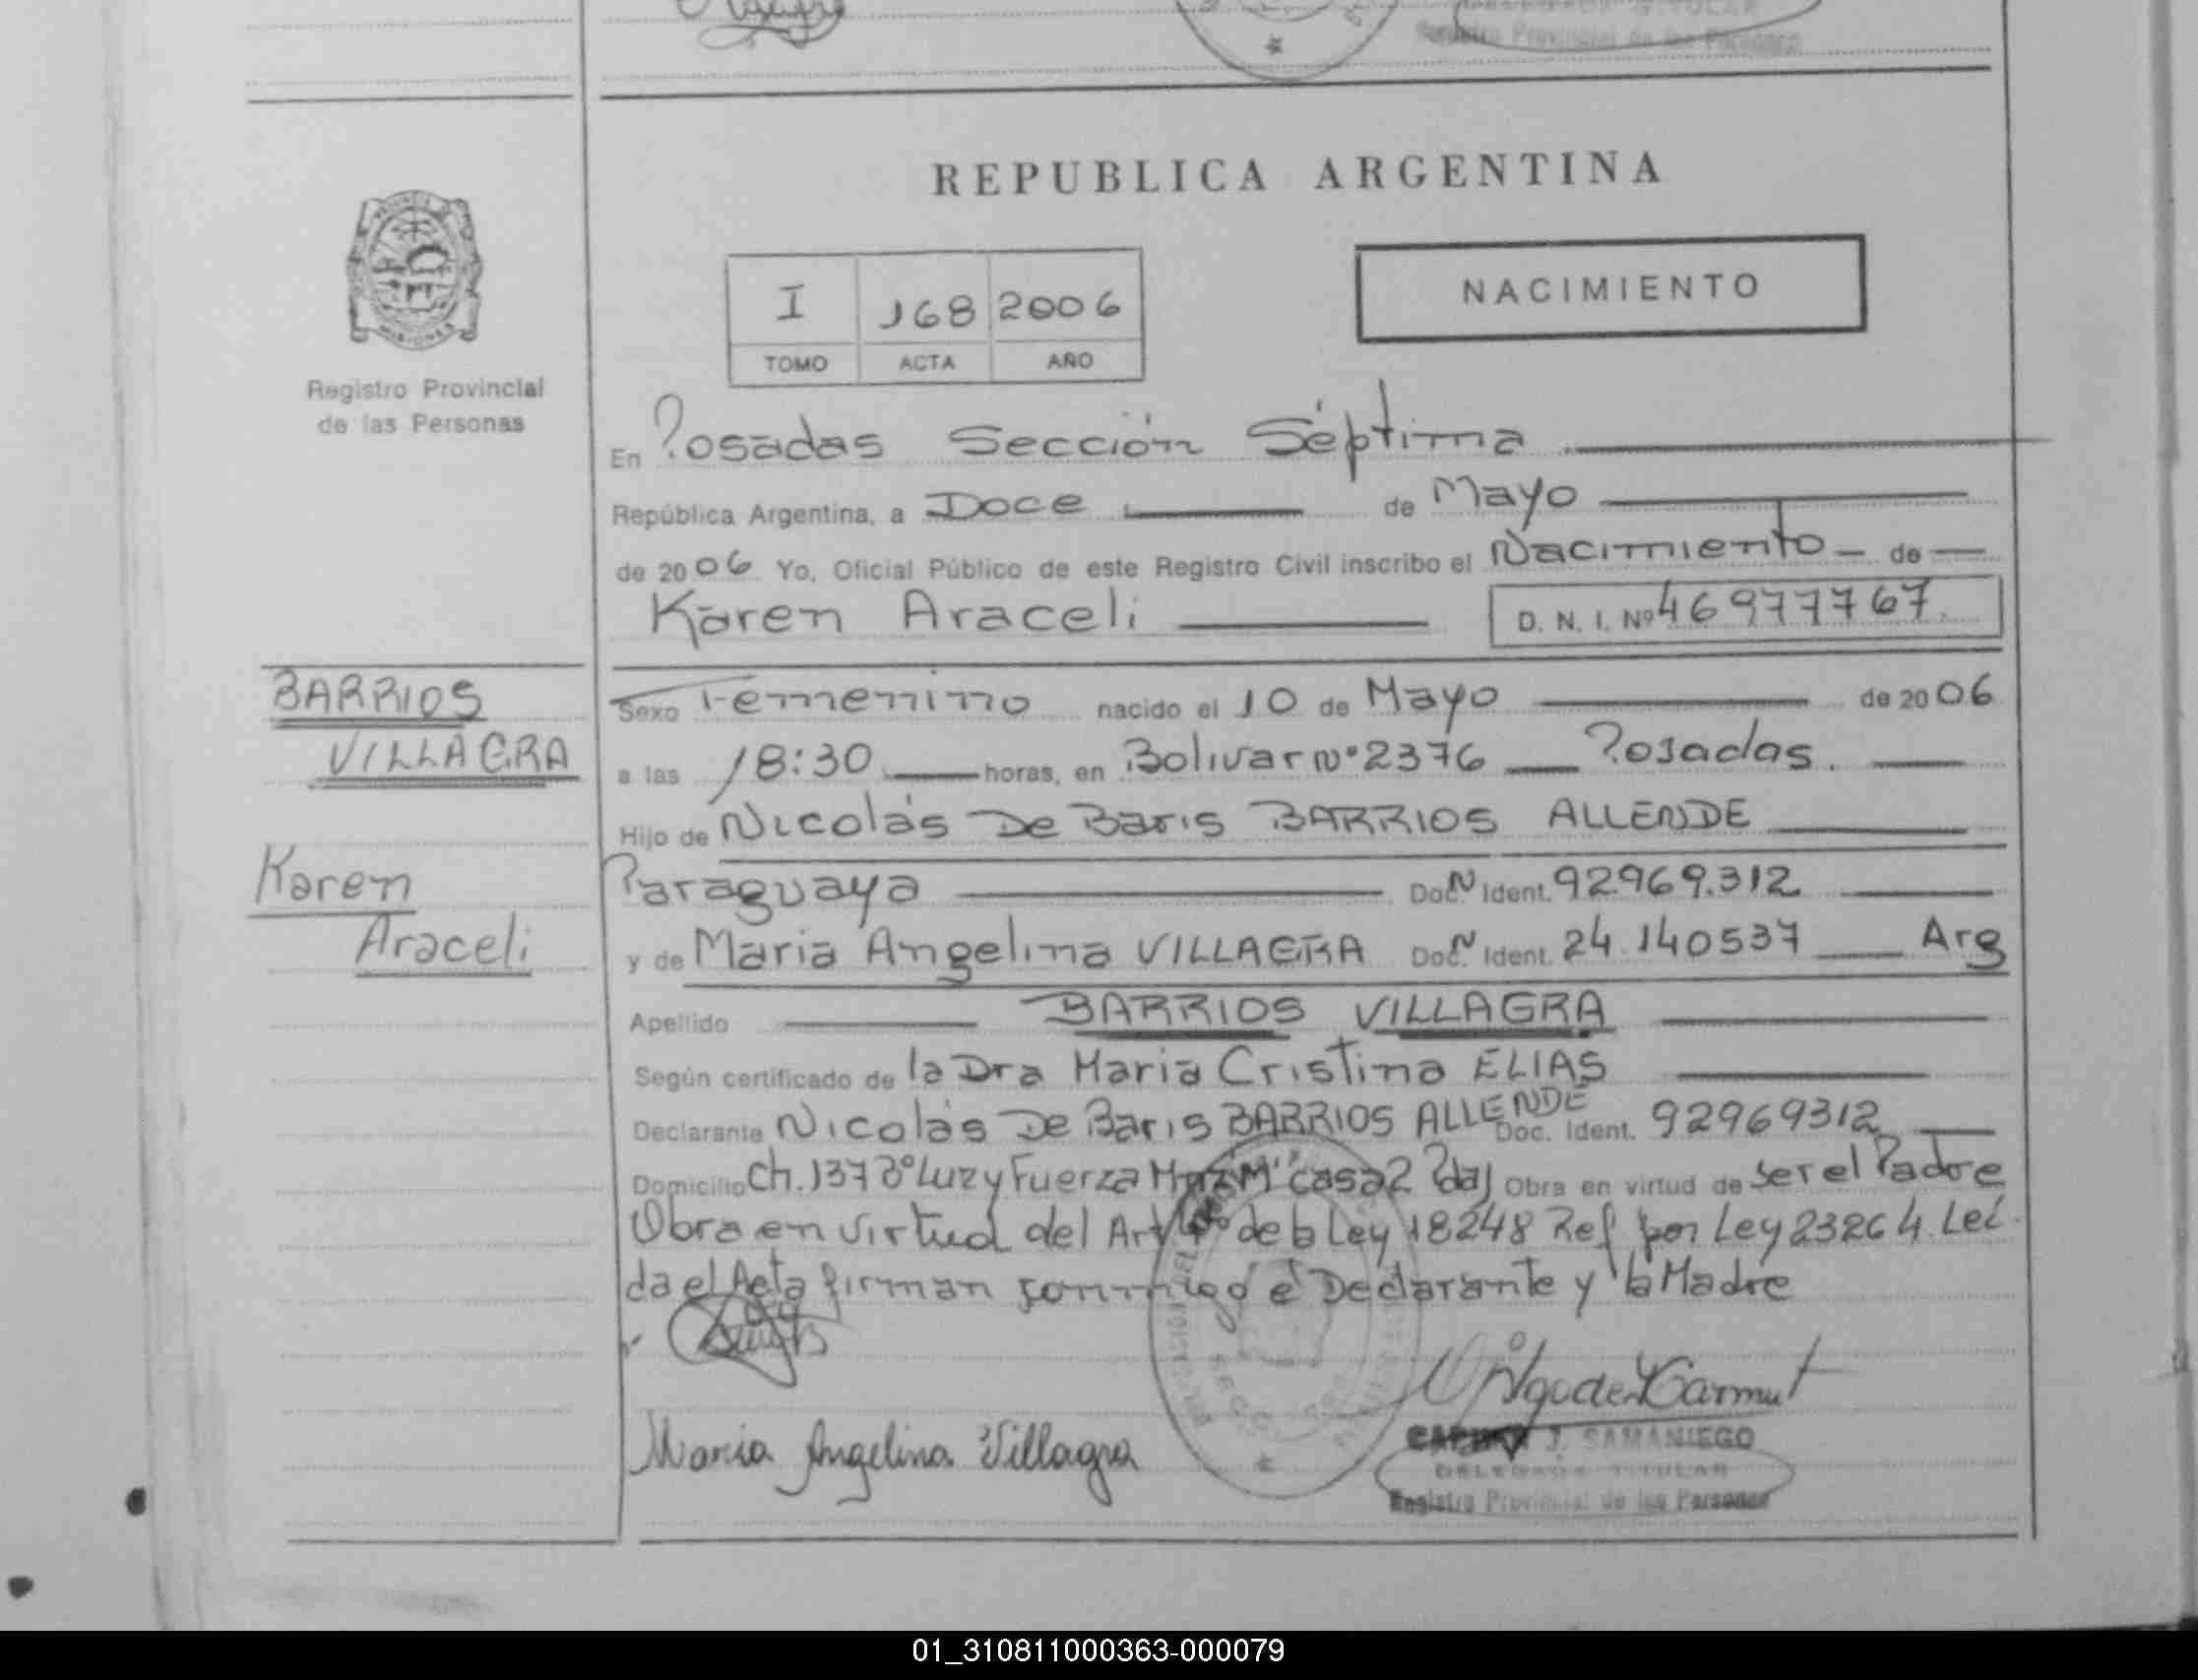 REPUBLICA ARGENTINA
NACIMIENTO
I 168 2006
TOMO ACTA AÑO
Registro Provincial
de las Personas
En Posadas Sección Séptima
República Argentina, a Doce de Mayo
de 2006 Yo, Oficial Público de este Registro Civil inscribo el Nacimiento de
Karen Araceli D. N. I. Nº 46977767
BARRIOS
VILLAGRA
Karen
Araceli
Sexo Femenino nacido el 10 de Mayo de 2006
a las 18:30 horas, en Bolivar Nº 2376 Posadas.
Hijo de Nicolás De Baris BARRIOS ALLENDE
Paraguaya Doc. N Ident. 92969.312
y de Maria Angelina VILLAGRA Doc. N Ident. 24.140537 Arg
Apellido BARRIOS VILLAGRA
Según certificado de la Dra Maria Cristina ELIAS
Declarante Nicolás De Baris BARRIOS ALLENDE Doc. Ident. 92969312
Domicilio Ch. 137 Bº Luz y Fuerza "M" casa 2 Pdas Obra en virtud de ser el Padre
Obra en virtud del Art de la Ley 18248 Ref por Ley 23264. Leí
da el Acta firman conmigo el Declarante y la Madre
Maria Angelina Villagra
J. SAMANIEGO
DELEGADA TITULAR
Registro Provincial de las Personas
01_310811000363-000079